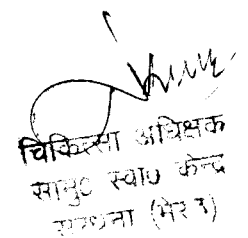 चिकित्सा अधिक्षक
सामु० स्वा० केन्द्र
सरधना (मेरठ)